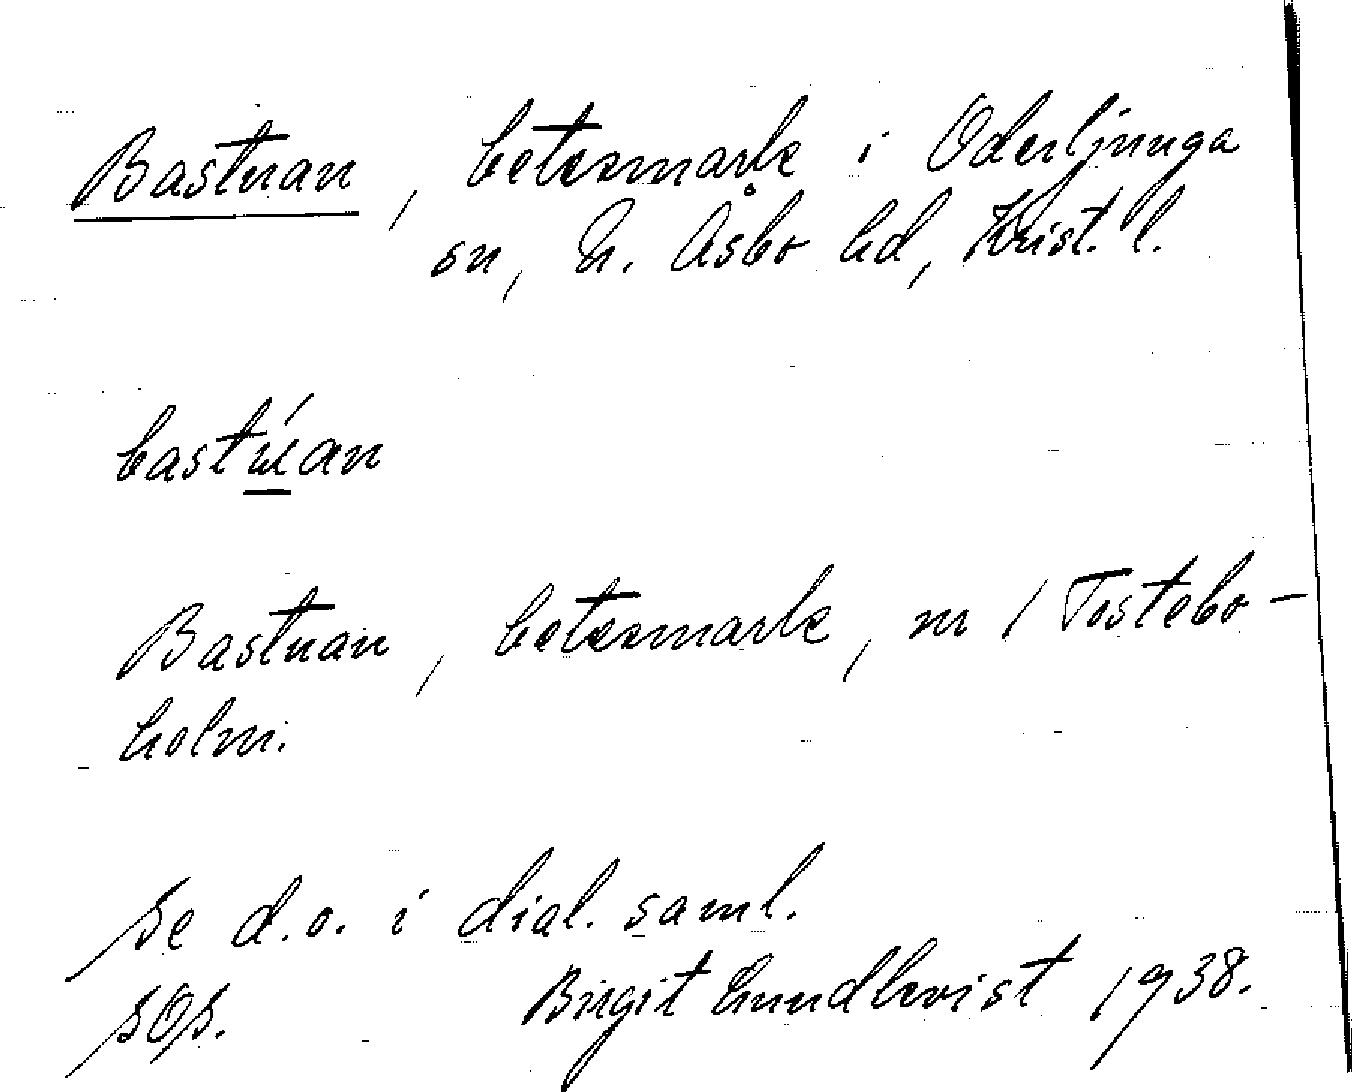 Bastuan, betesmark i Oderljunga
sn, N. Åsbo hd, Krist. l.
bastúan
Bastuan, betesmark, nr 1 Tostebo-
holm.
Se d.o. i dial. saml.
SOS. Birgit Lundkvist 1938.